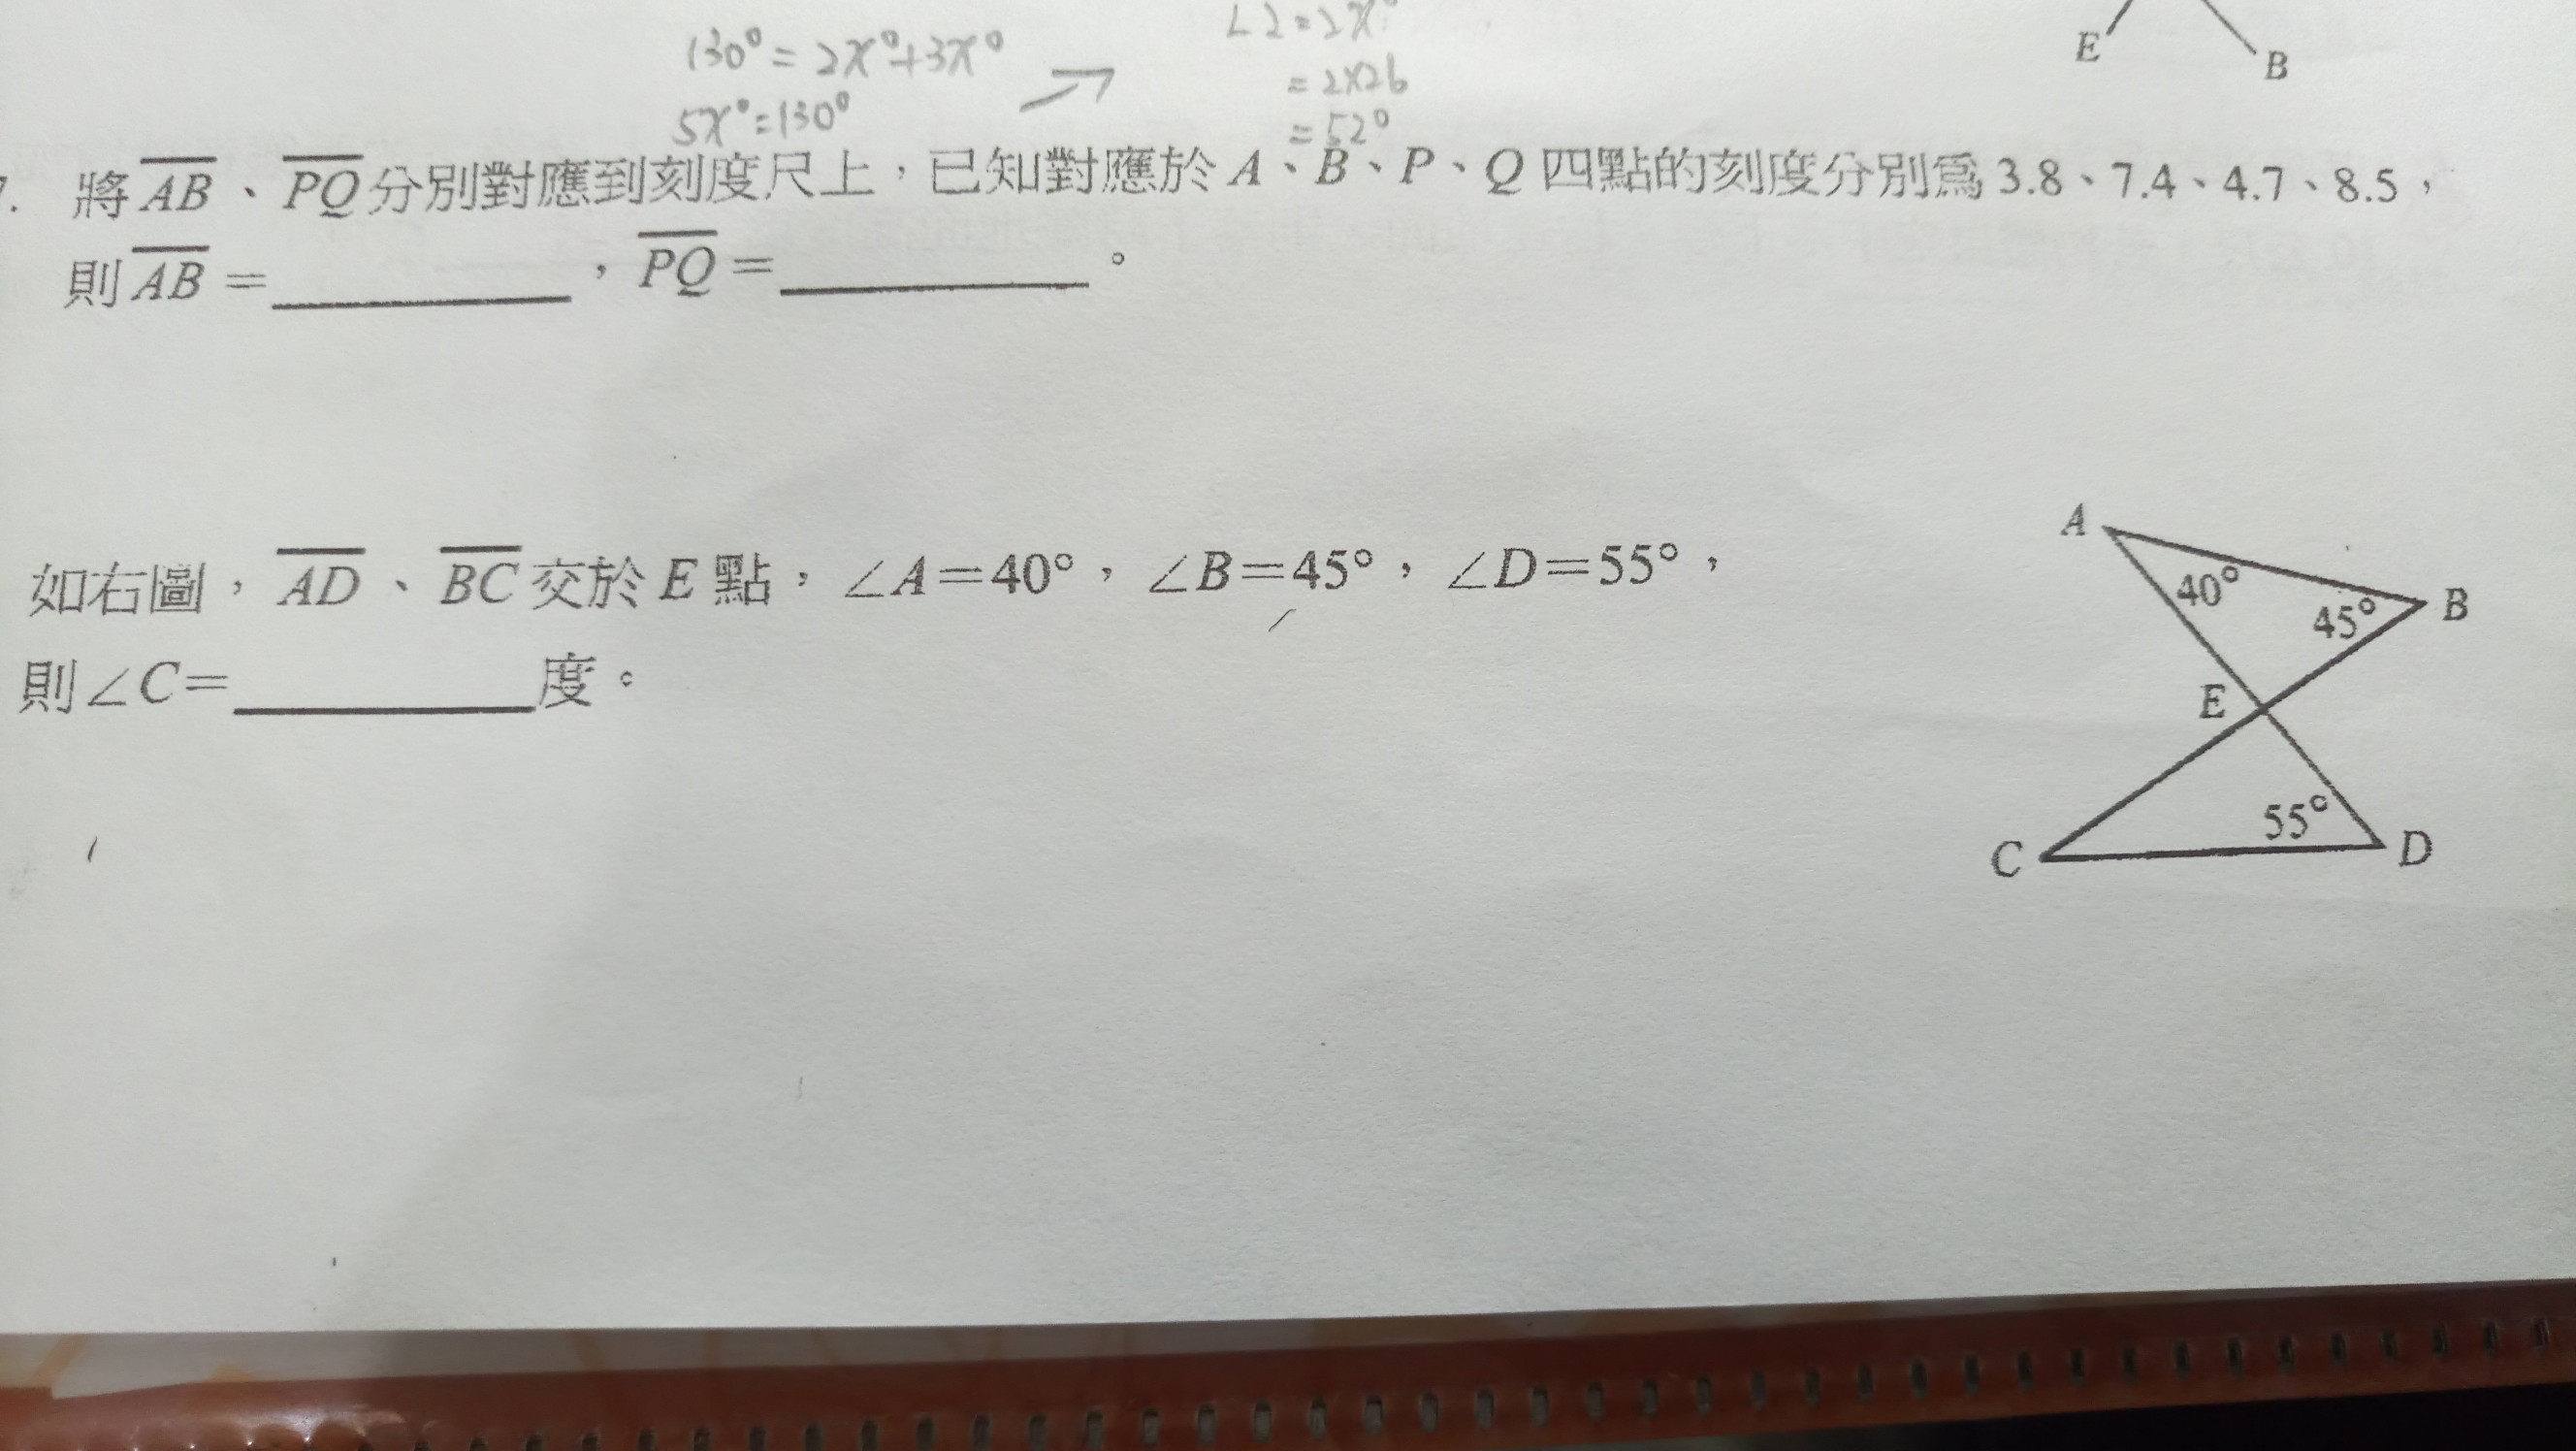 130°=2x°+3x°
5x°=130°
∠2=2x°
=2×26
=52°
E
B
7. 將AB、PQ分別對應到刻度尺上，已知對應於A、B、P、Q四點的刻度分別為3.8、7.4、4.7、8.5，
則AB=__________，PQ=__________。
如右圖，AD、BC交於E點，∠A=40°，∠B=45°，∠D=55°，
則∠C=__________度。
A
40°
45°
B
E
55°
C
D